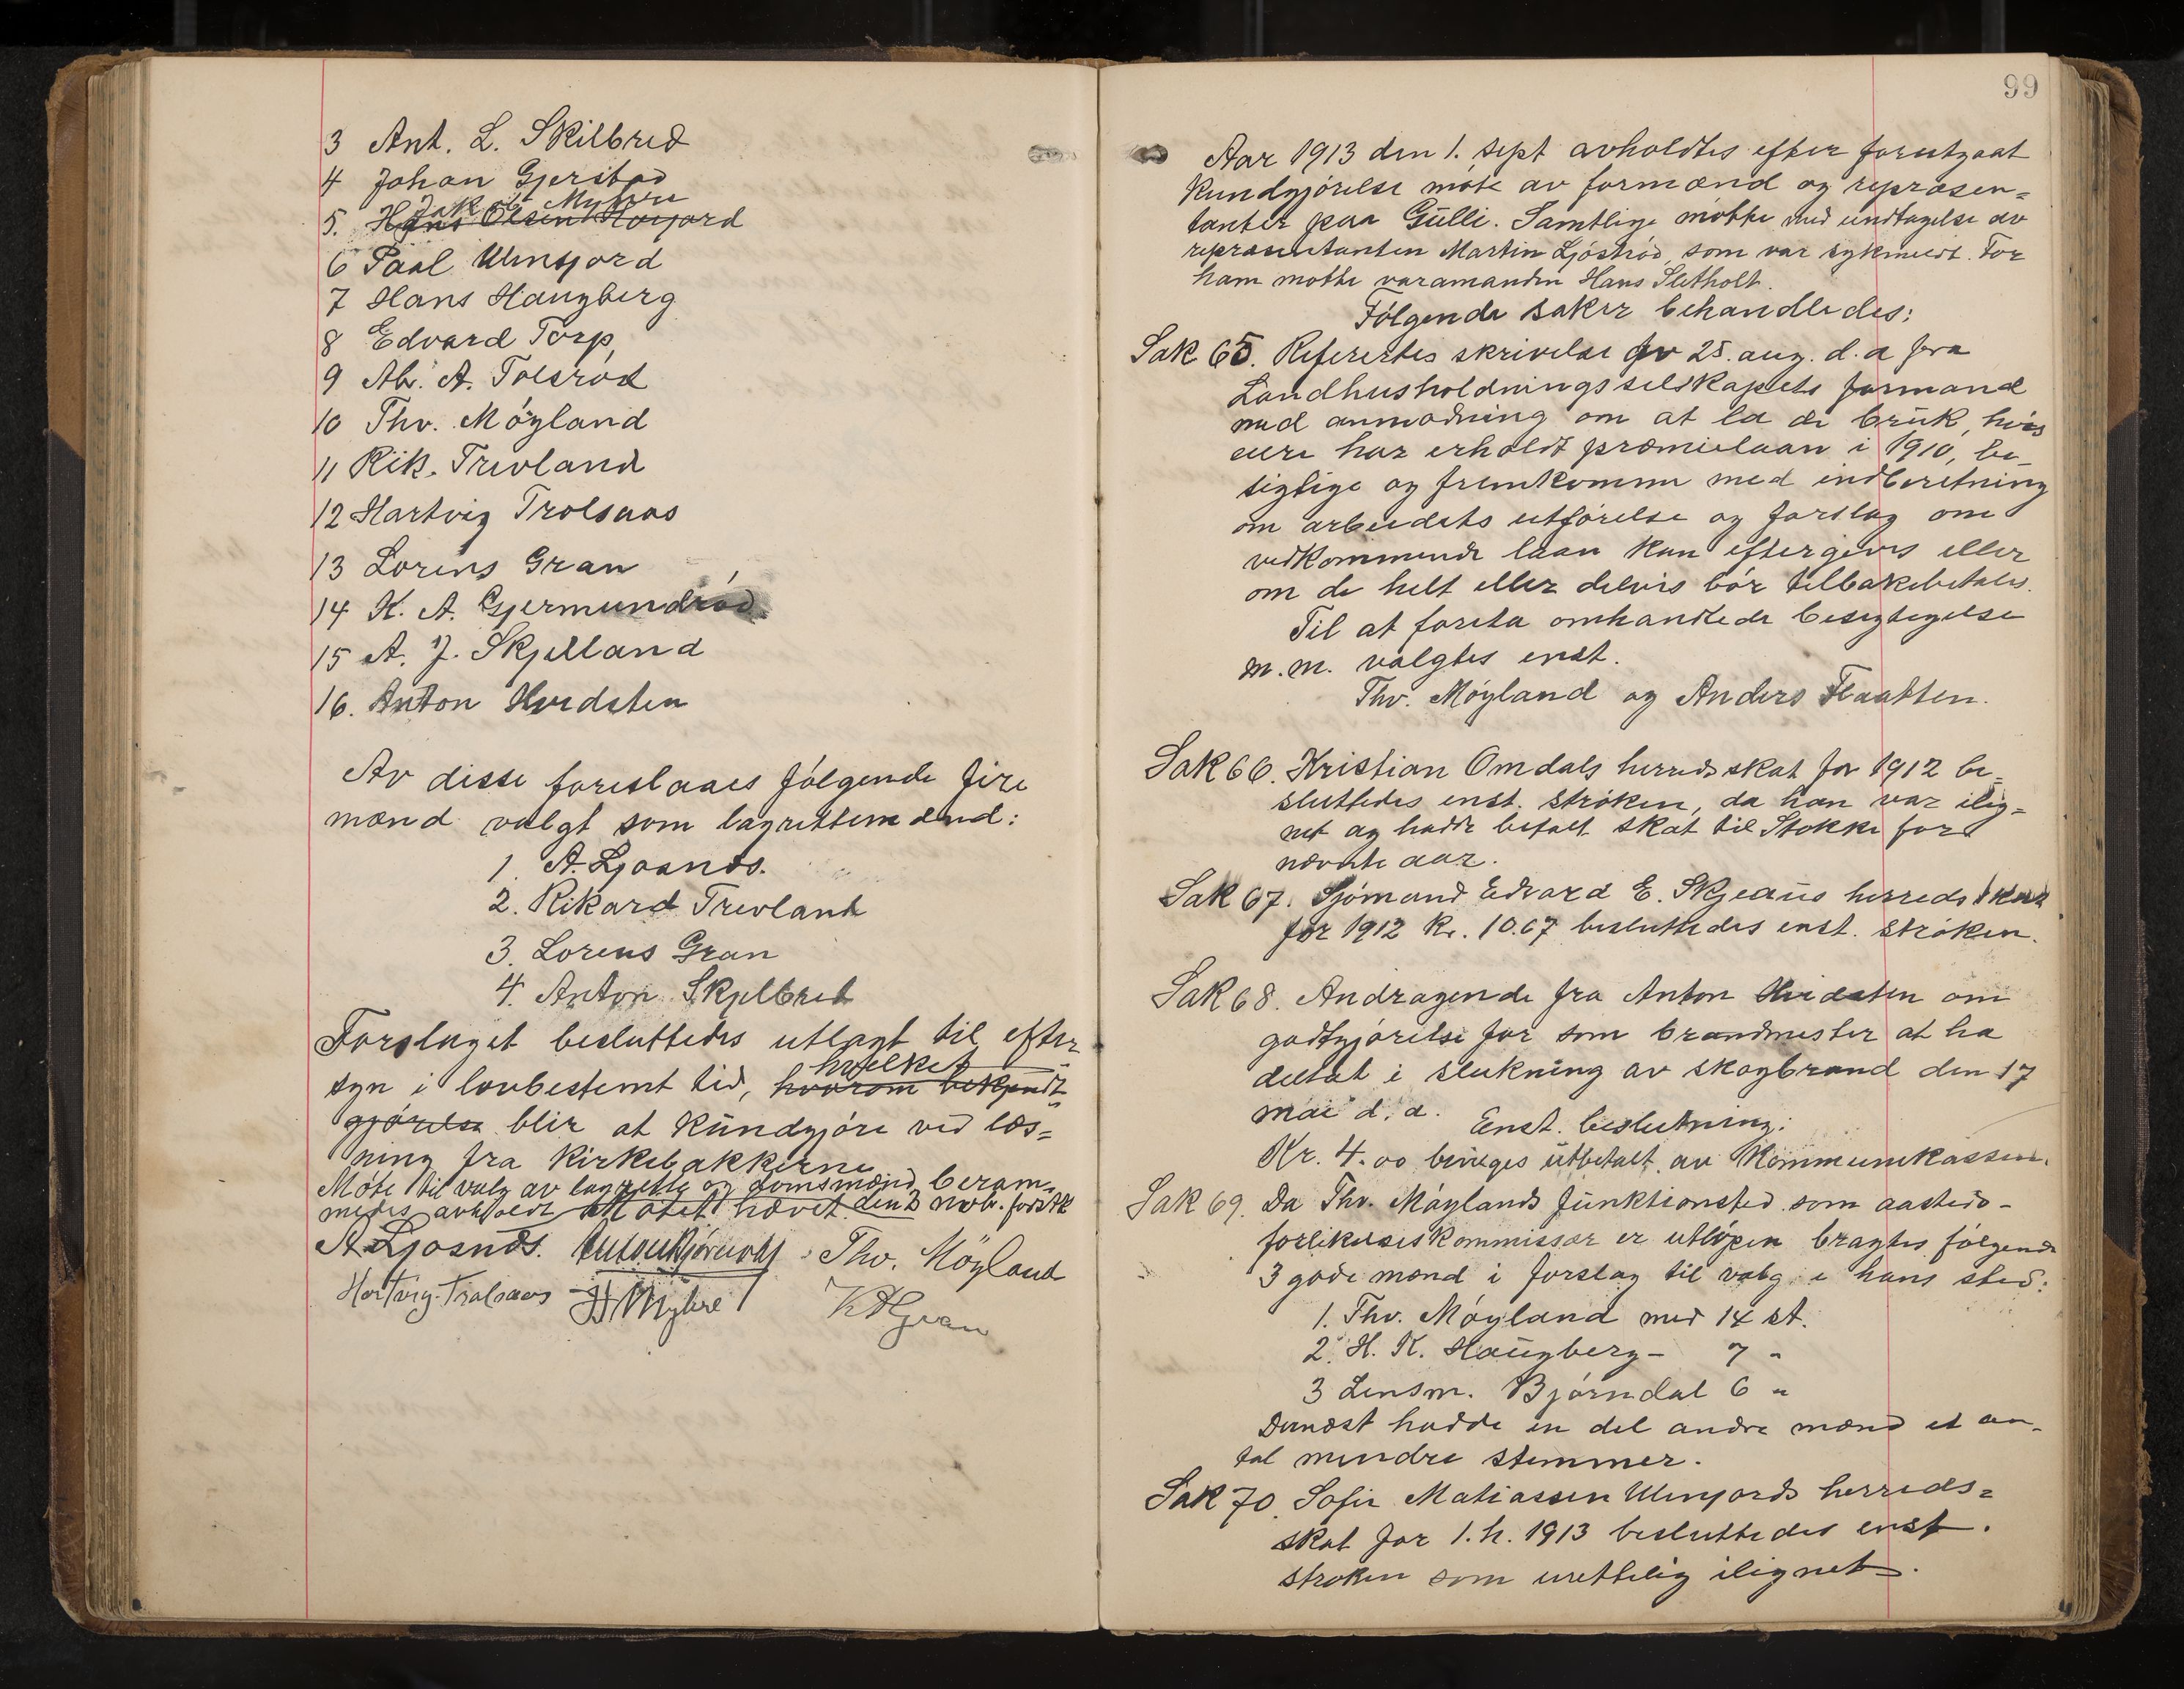 3 Ant. L. Skilbred
4 Johan Gjerstad
Jakob Myhre
5. Hans Olsen Horjord
6 Paal Ulensjord
7 Hans Haugberg
8 Edvard Torp
9 Ab. A. Tolsrød
10 Thv. Møyland
11 Rik. Trevland
12 Hartvig Trolsaas
13 Lorens Gran
14 K. A. Gjermundrød.
15 A. J. Skjelland
16. Anton Hvidsten
Av disse foreslaaes følgende fire
mænd valgt som lagrettemænd:
1. A. Ljosnøs.
2. Rikard Trevland
3. Lorens Gran
4. Anton Skjelbred
Forslaget besluttedes utlagt til efter
hvilket
syn i lovbestemt tid, hvorom bekjendt-
gjørelse blir at kundgjøre ved læs=
ning fra kirkebakkerne
Møte til valg av lagrette og domsmænd beram-
medes avholdt Møtet hævet den 3 novbr. førstk
A Ljosnøs. Thv. Möyland
Hartvig Trolsaas H Myhre K A Gran
99
Aar 1913 den 1. sept avholdtes efter forutgaat
kundgjørelse møte av formænd og repræsen=
tanter paa Gulli. Samtlige møtte med undtagelse av
repræsentanten Martin Ljøstrød, som var sykmeldt. For
ham møtte varamanden Hans Sletholt.
Følgende saker behandledes:
Sak 65. Refertes skrivelse av 25. aug. d. a fra
Landhusholdningsselskapets formand
med anmodning om at la de bruk, hvis
eiere har erholdt præmielaan i 1910, be-
sigtige og fremkomme med indberetning
om arbeidets utførelse og forslag om
vedkommende laan kan eftergives eller
om de helt eller delvis bør tilbakebetales.
Til at foreta omhandlede besigtigelse
m.m. valgtes enst.
Thv. Møyland og Anders Flaatten.
Sak 66. Kristian Omdals herredsskat for 1912 be=
sluttedes enst. strøken, da han var ilig=
net og hadde betalt skat til Stokke for
nævnte aar.
Sak 67. Sjømand Edvard E. Skjeaus herredsskat
for 1912 kr. 10.67 besluttedes enst. strøken.
Sak 68. Andragende fra Anton Hvidsten om
godtgjørelse for som brandmester at ha
deltat i slukning av skogbrand den 17
mai d. a. Enst. beslutning:
Kr. 4.00 bevilges utbetalt av kommunekassen.
Sak 69. Da Thv. Møylands funktionstid som aasteds-
forlikelseskommissær er utløpen bragtes følgende
3 gode mænd i forslag til valg i hans sted:
1. Thv. Møyland med 14 st.
2. H. K. Haugberg - 7 "
3 Lensm. Bjørndal 6 "
Dernæst hadde en del andre mænd et an-
tal mindre stemmer.
Sak 70. Sofie Matiassen Ulensjords herreds=
skat for 1. h. 1913 besluttedes enst.
strøken som urettelig ilignet.